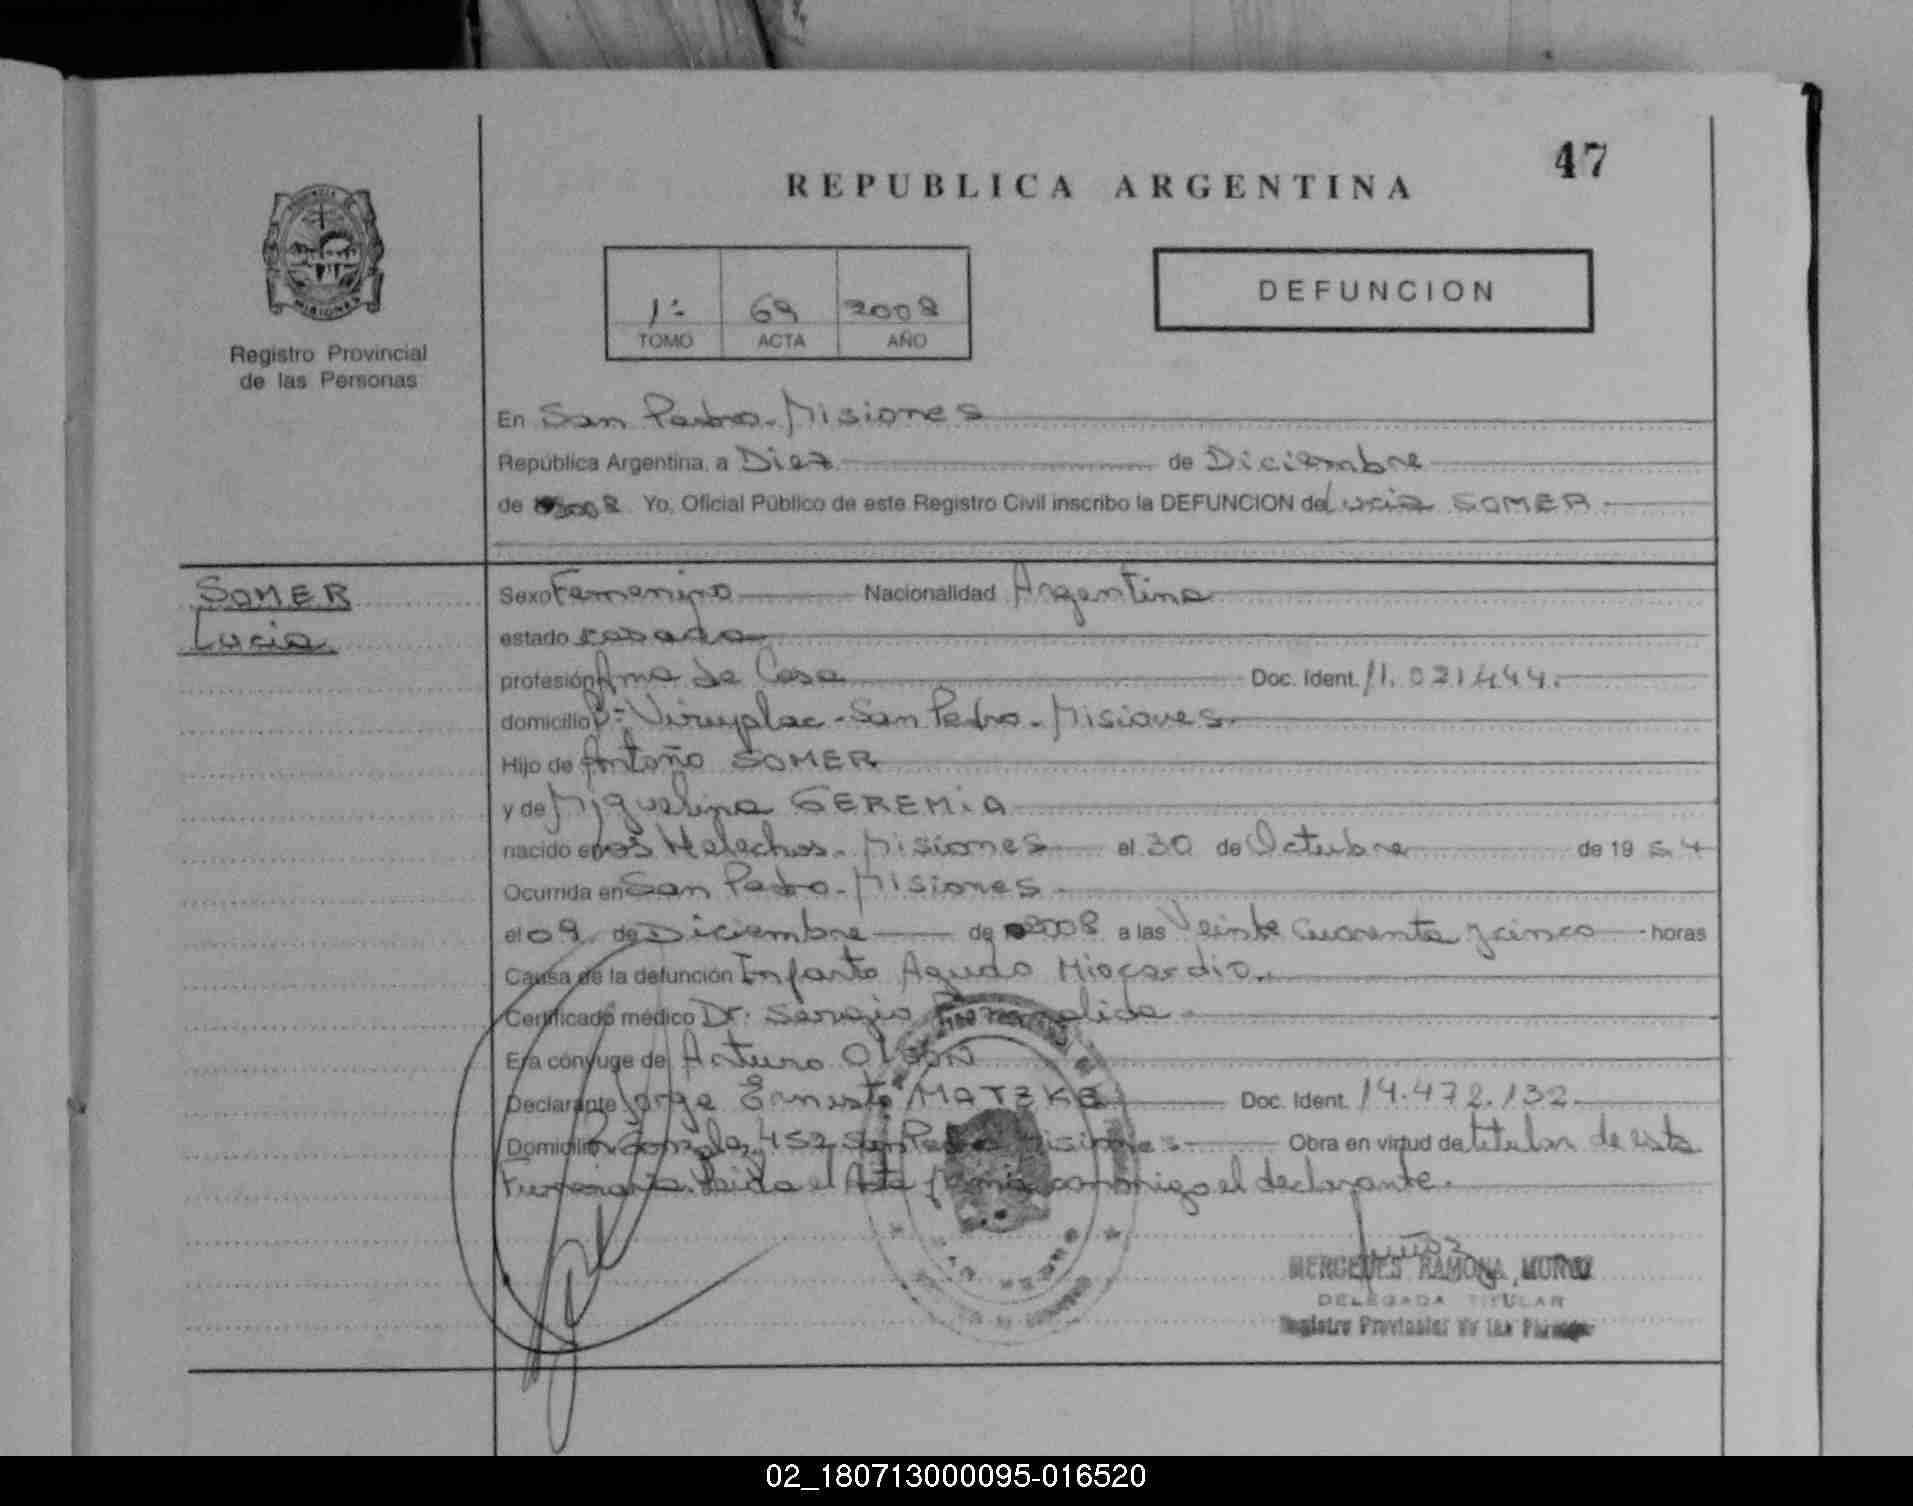 47
REPUBLICA ARGENTINA
MISIONES
Registro Provincial
de las Personas
1º 69 2008
TOMO ACTA AÑO
DEFUNCION
En San Pedro - Misiones
República Argentina, a Diez de Diciembre
de 2008 Yo, Oficial Público de este Registro Civil inscribo la DEFUNCION de Lucia SOMER
SOMER
Lucia
Sexo Femenino Nacionalidad Argentina
estado casada
profesión Ama de Casa Doc. Ident. 11.021444.
domicilio Bº Viruplac - San Pedro - Misiones
Hijo de Antoño SOMER
y de Miguelina GEREMIA
nacido en Los Helechos - Misiones el 30 de Octubre de 19 54
Ocurrida en San Pedro - Misiones
el 09 de Diciembre de 2008 a las Veinte Cuarenta y cinco horas
Causa de la defunción Infarto Agudo Miocardio.
Certificado médico Dr. Sergio
Era cónyuge de Arturo OLSON
Declarante Jorge Ernesto MATZKE Doc. Ident. 14.472.132
Domicilio Gonzalez 452 San Pedro Misiones Obra en virtud de titular de esta
Funeraria. Leida el Acta firma conmigo el declarante.
Muñoz
MERCEDES RAMONA MUÑOZ
DELEGADA TITULAR
Registro Provincial de las Personas
02_180713000095-016520